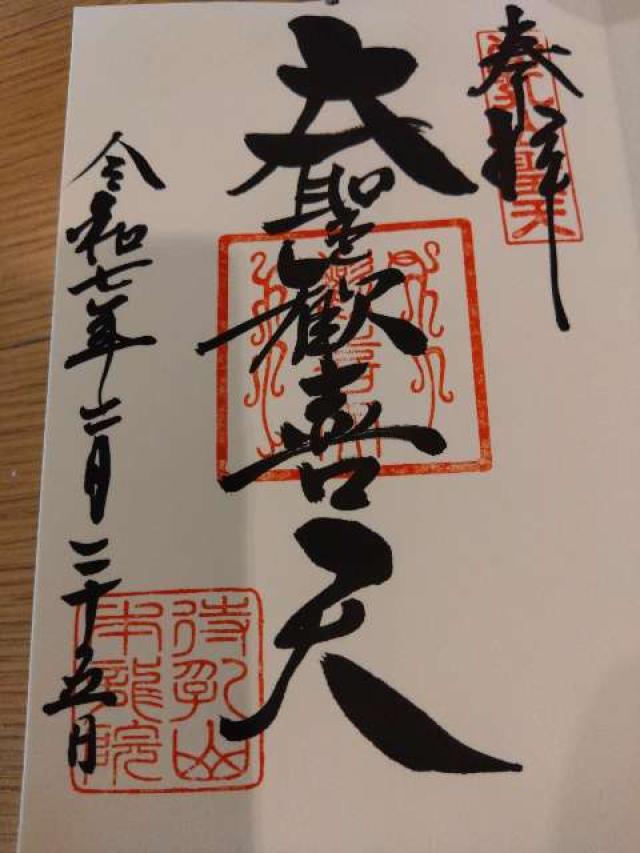 奉拝
待乳山聖天
大聖歓喜天
令和七年二月二十五日
待乳山
本龍院